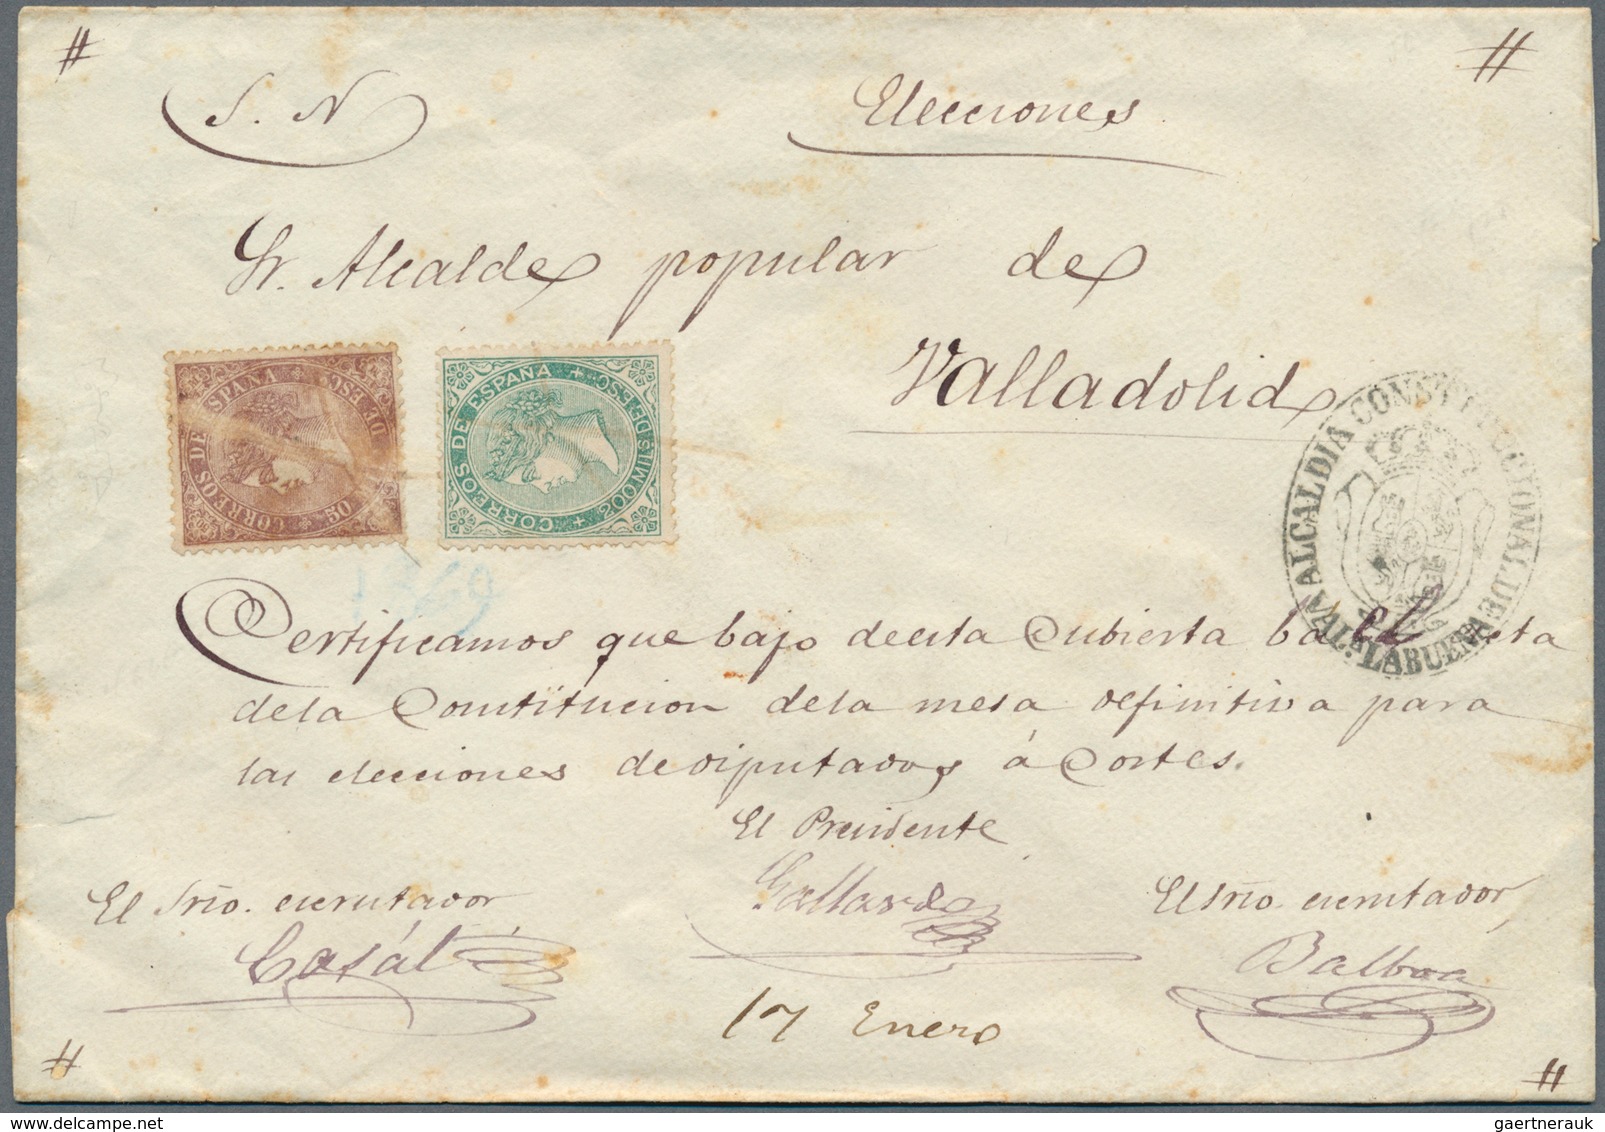 S. N
Elecciones
Sr. Alcalde popular de
Valladolid
CORREOS DE ESPAÑA
50 DE ESC
CORREOS DE ESPAÑA
200 MILS DE ESC
ALCALDIA CONSTITUCIONAL DE
VALBUENA
Certificamos que bajo de esta Cubierta ba el acta
de la Constitucion de la mesa definitiva para
las elecciones de diputados á Cortes.
El Presidente
Gallardo
El Srio. escrutador,
Casál
El Srio. escrutador,
Balboa
17 Enero
gaertnerauk